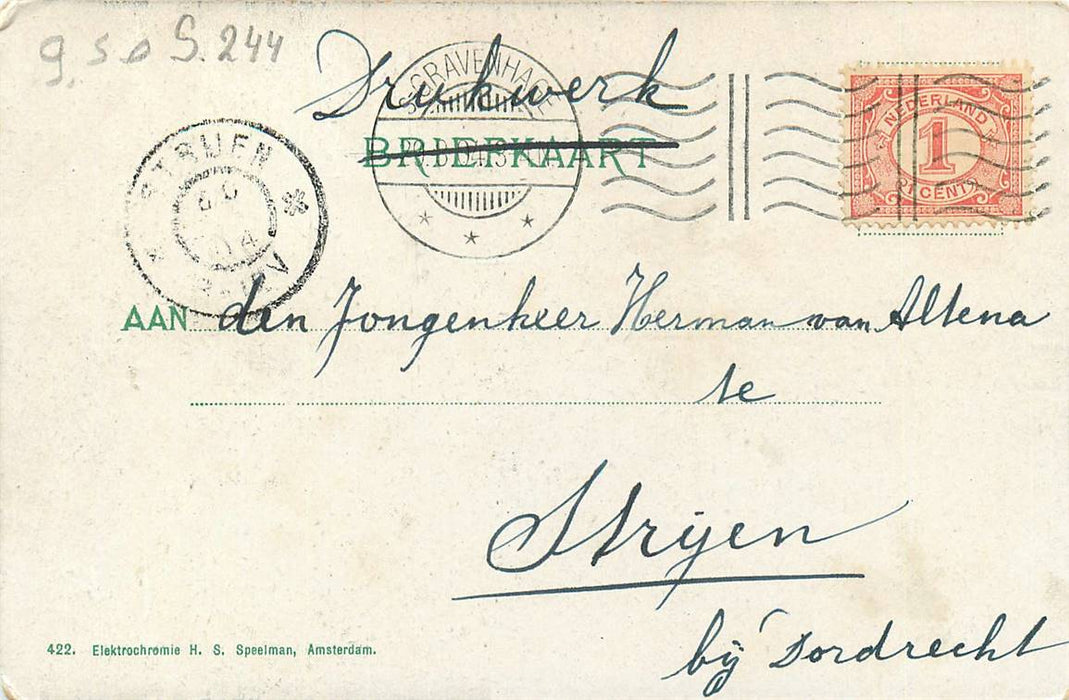 9,50 S.244
Drukwerk
BRIEFKAART
'S-GRAVENHAGE
NEDERLAND
1
CENT
STRIJEN
AAN den Jongenheer Herman van Altena
te
Strijen
bij Dordrecht
422. Elektrochromie H. S. Speelman, Amsterdam.